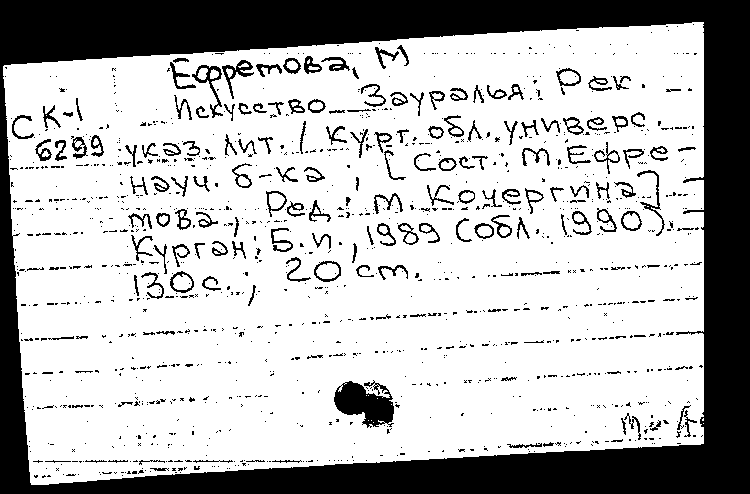 Ефремова, М
Искусство Зауралья: Рек.
СК-1
6299
указ. лит. / Курт. обл. универс.
науч. б-ка ; [Сост.: М. Ефре-
мова; Ред.: М. Кочергина] -
Курган: Б. и., 1989 (обл. 1990). -
130 с.; 20 см.